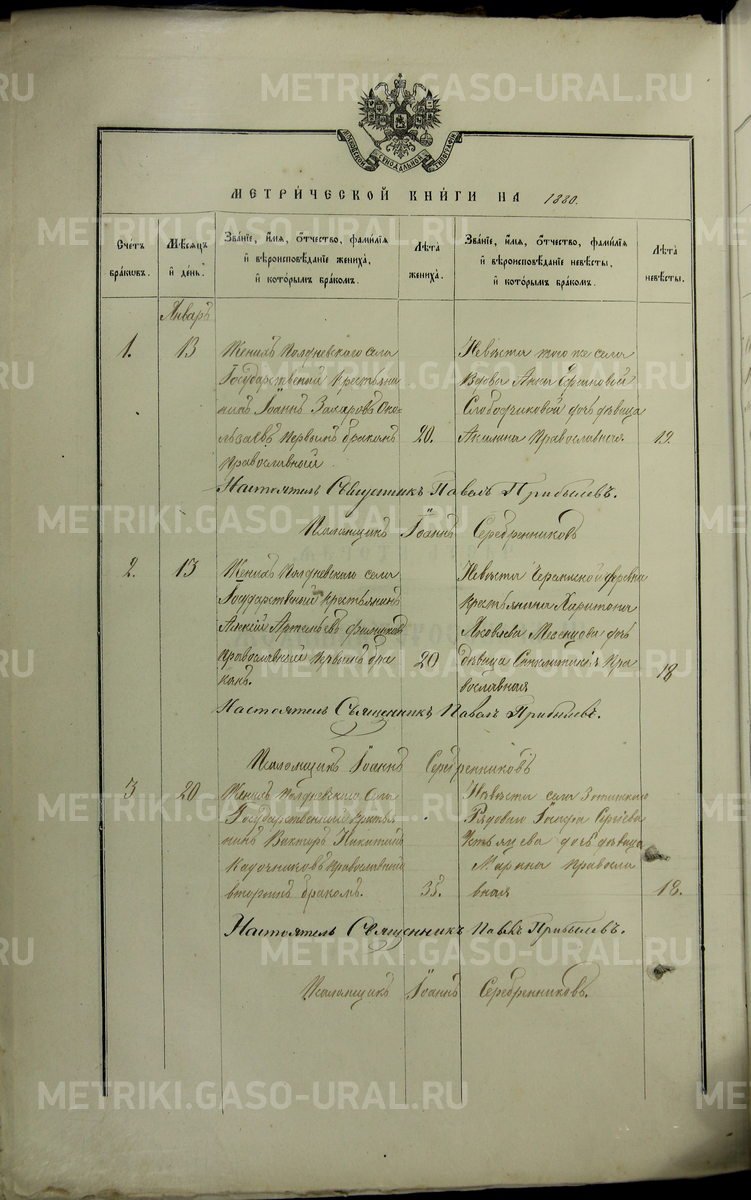 METRIKI.GASO-URAL.RU
МЕТРИЧЕСКОЙ КНИГИ НА 1880.
Счетъ браковъ.
Мѣсяцъ и день.
Званіе, имя, отчество, фамилія и вѣроисповѣданіе жениха, и которымъ бракомъ.
Лѣта жениха.
Званіе, имя, отчество, фамилія и вѣроисповѣданіе невѣсты, и которымъ бракомъ.
Лѣта невѣсты.
Январь
1.
13
Женихъ Полдневскаго села
Государственный крестьяни
нъ Іоаннъ Захаровъ
первымъ бракомъ
православный
20.
Невѣста того же села
Вдова Анна
Слободчиковой дочь дѣвица
Акилина православная
19.
Настоятель Священникъ Павелъ Прибылевъ.
Псаломщикъ Іоаннъ Серебренниковъ
2.
13
Женихъ Полдневскаго села
Государственный крестьянинъ
Алексѣй Артемьевъ
православный первымъ бра
комъ.
20
Невѣста деревни
крестьянина Харитона
Яковлева дочь
дѣвица пра
вославная
18
Настоятель Священникъ Павелъ Прибылевъ.
Псаломщикъ Іоаннъ Серебренниковъ
3
20
Женихъ Полдневскаго Села
Государственный крестья
нинъ Викторъ Никитинъ
Кадочниковъ православный
вторымъ бракомъ.
35.
Невѣста села
Рядоваго
Устьянцева дочь дѣвица
Марина правосла
вная
18.
Настоятель Священникъ Павелъ Прибылевъ.
Псаломщикъ Іоаннъ Серебренниковъ.